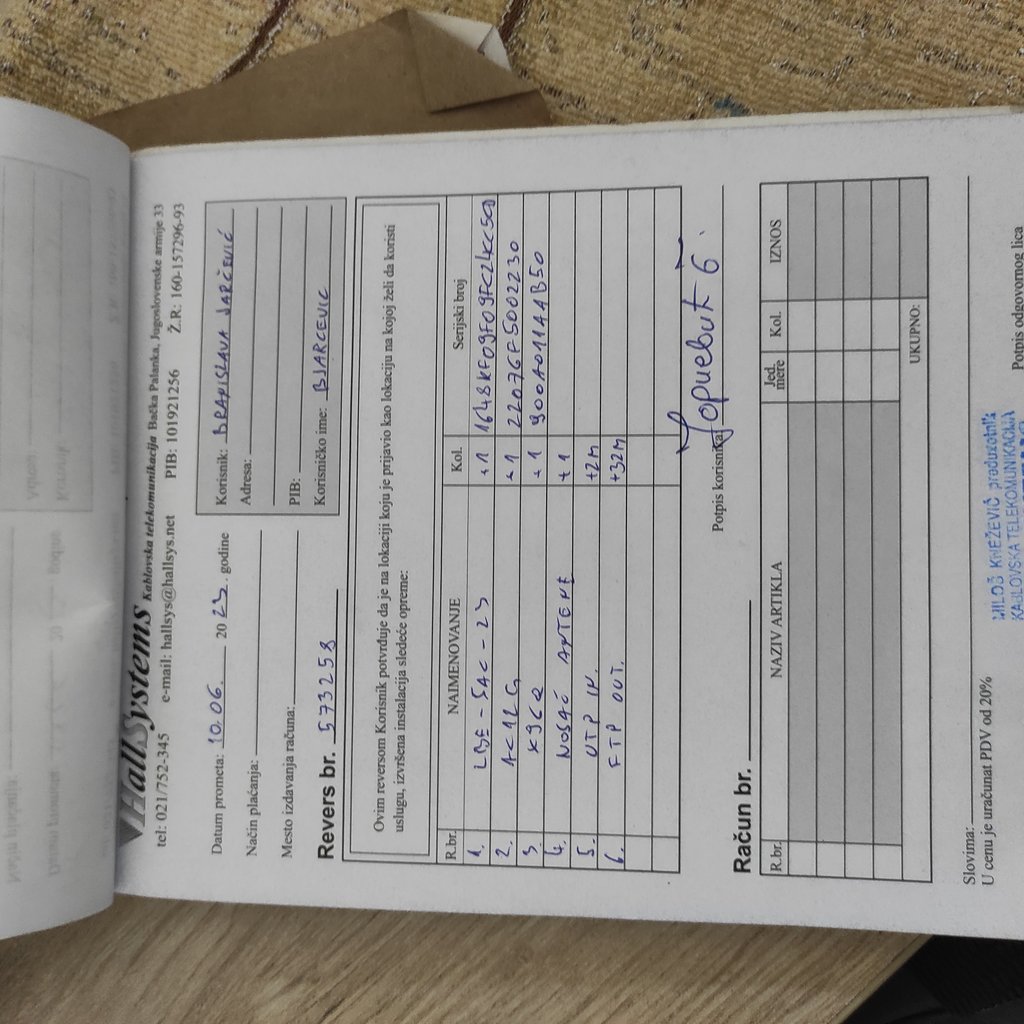 HallSystems Kablovska telekomunikacija Bačka Palanka, Jugoslovenske armije 33
tel: 021/752-345 e-mail: hallsys@hallsys.net PIB: 101921256 Ž.R: 160-157296-93
Datum prometa: 10.06. 20 23. godine
Način plaćanja:
Mesto izdavanja računa:
Revers br. 573258
Korisnik: BRANISLAVA JARČEVIĆ
Adresa:
PIB:
Korisničko ime: BJARCEVIC
Ovim reversom Korisnik potvrđuje da je na lokaciji koju je prijavio kao lokaciju na kojoj želi da koristi
uslugu, izvršena instalacija sledeće opreme:
R.br. NAIMENOVANJE Kol. Serijski broj
1. LBE-5AC-23 +1
2. AC12G +1 22076F5002230
3. +1 900A011AAB50
4. NOSAČ ANTENE +1
5. UTP IN. +2M
6. FTP OUT. +32M
Potpis korisnika
Račun br.
R.br. NAZIV ARTIKLA Jed. mere Kol. IZNOS
UKUPNO:
Slovima:
U cenu je uračunat PDV od 20%
MILOŠ KNEŽEVIĆ preduzetnik
KABLOVSKA TELEKOMUNIKACIJA
Potpis odgovornog lica